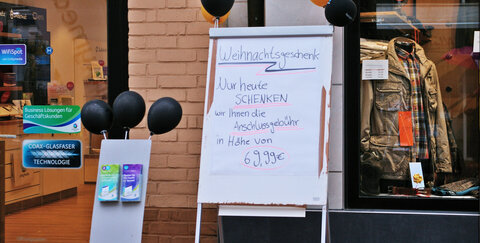 WiFiSpot
Business Lösungen für
Geschäftskunden
COAX-GLASFASER
TECHNOLOGIE
Weihnachtsgeschenk
Nur heute
SCHENKEN
wir Ihnen die
Anschlussgebühr
in Höhe von
69,99€